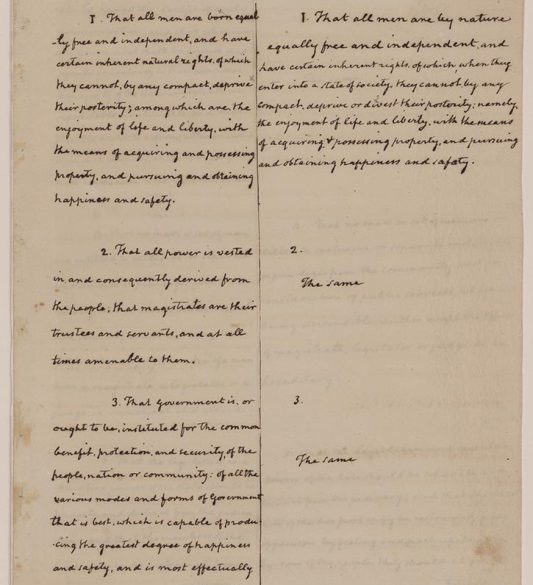 1. That all men are born equal
-ly free and independent, and have
certain inherent natural rights, of which
they cannot, by any compact, deprive
their posterity; among which are, the
enjoyment of life and liberty, with
the means of acquiring and possessing
property, and pursuing and obtaining
happiness and safety.
2. That all power is vested
in, and consequently derived from
the people; that magistrates are their
trustees and servants, and at all
times amenable to them.
3. That government is, or
ought to be, instituted for the common
benefit, protection, and security, of the
people, nation or community: of all the
various modes and forms of Government
that is best, which is capable of produ-
-cing the greatest degree of happiness
and safety, and is most effectually
1. That all men are by nature
equally free and independent, and
have certain inherent rights, of which, when they
enter into a state of society, they cannot, by any
compact, deprive or divest their posterity; namely,
the enjoyment of life and liberty, with the means
of acquiring & possessing property, and pursuing
and obtaining happiness and safety.
2.
The same
3.
The same